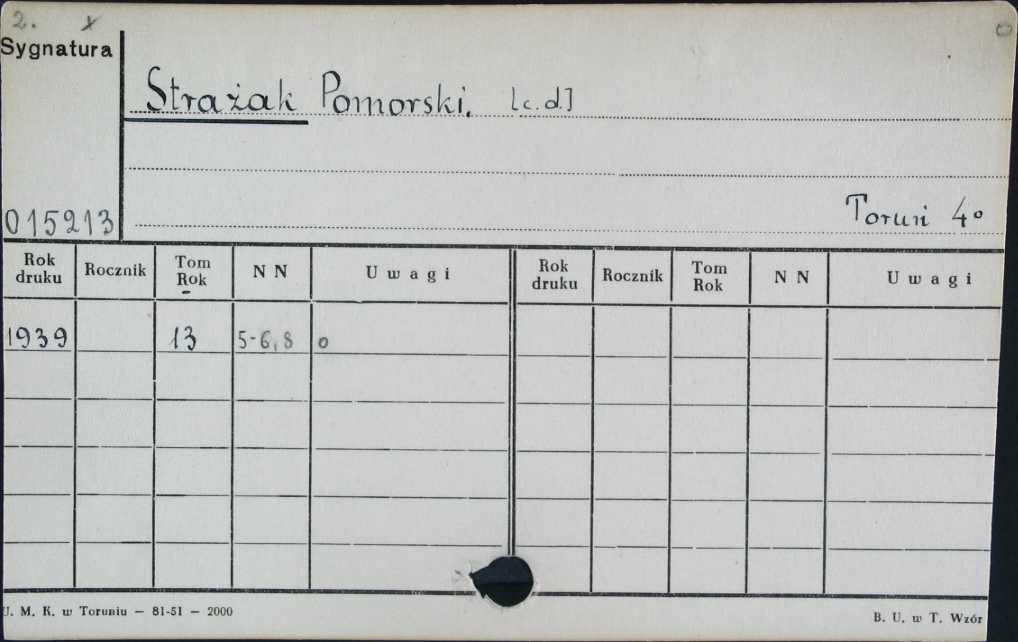 2. x
Sygnatura
Strażak Pomorski. [c.d.]
015213
Toruń 4°
Rok druku Rocznik Tom Rok N N Uwagi Rok druku Rocznik Tom Rok N N Uwagi
1939 13 5-6,8 o
U. M. K. w Toruniu — 81-51 — 2000
B. U. w T. Wzór